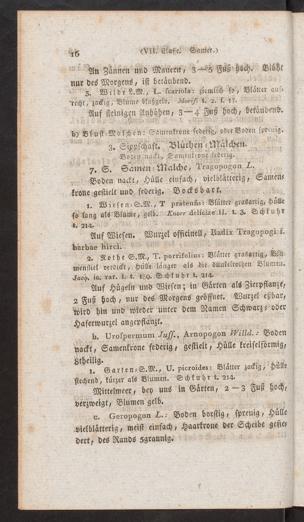 16 (VII. Classe. Samier.)
An Zäunen und Mauern, 3—5 Fuß hoch. Blüht
nur des Morgens, ist betäubend.
3. Wilde S.M., L. Scariola: ziemlich so, Blätter auf-
recht, zackig, Blume blaßgelb. Moris. t. 2. f. 17.
Auf steinigen Anhöhen, 3—4 Fuß hoch, betäubend.
b) Blust-Molchen: Samenkrone federig, oder Boden spreuig.
3. Sippschaft. Blüthen-Malchen.
Boden nackt, Samenkrone federig.
7. S. Samen-Malche, Tragopogon L.
Boden nackt, Hülle einfach, vielblätterig, Samen-
krone gestielt und federig. Bocksbart.
1. Wiesen-S.M., T. pratensis: Blätter grasartig, Hülle
so lang als Blume, gelb. Knorr deliciae II. t. 3. Schkuhr
t. 214.
Auf Wiesen. Wurzel officinell, Radix Tragopogi f.
barbae hirci.
2. Rothe S.M., T. porrifolius: Blätter grasartig, Blu-
menstiel verdickt, Hülle länger als die dunkelrothen Blumen.
Jacq. ic. rar. I. t. 159. Schkuhr t. 214.
Auf Hügeln und Wiesen; in Gärten als Zierpflanze,
2 Fuß hoch, nur des Morgens geöffnet. Wurzel eßbar,
wird hin und wieder unter dem Namen Schwarz- oder
Haferwurzel angepflanzt.
b. Urospermum Juss., Arnopogon Willd.: Boden
nackt, Samenkrone federig, gestielt, Hülle kreiselförmig,
8theilig.
1. Garten-S.M., U. picroides: Blätter zackig, Hülle
stechend, kürzer als Blumen. Schkuhr t. 214.
Mittelmeer, bey uns in Gärten, 2—3 Fuß hoch,
verzweigt, Blumen gelb.
c. Geropogon L.: Boden borstig, spreuig, Hülle
vielblätterig, meist einfach, Haarkrone der Scheibe gefie-
dert, des Rands 5grannig.